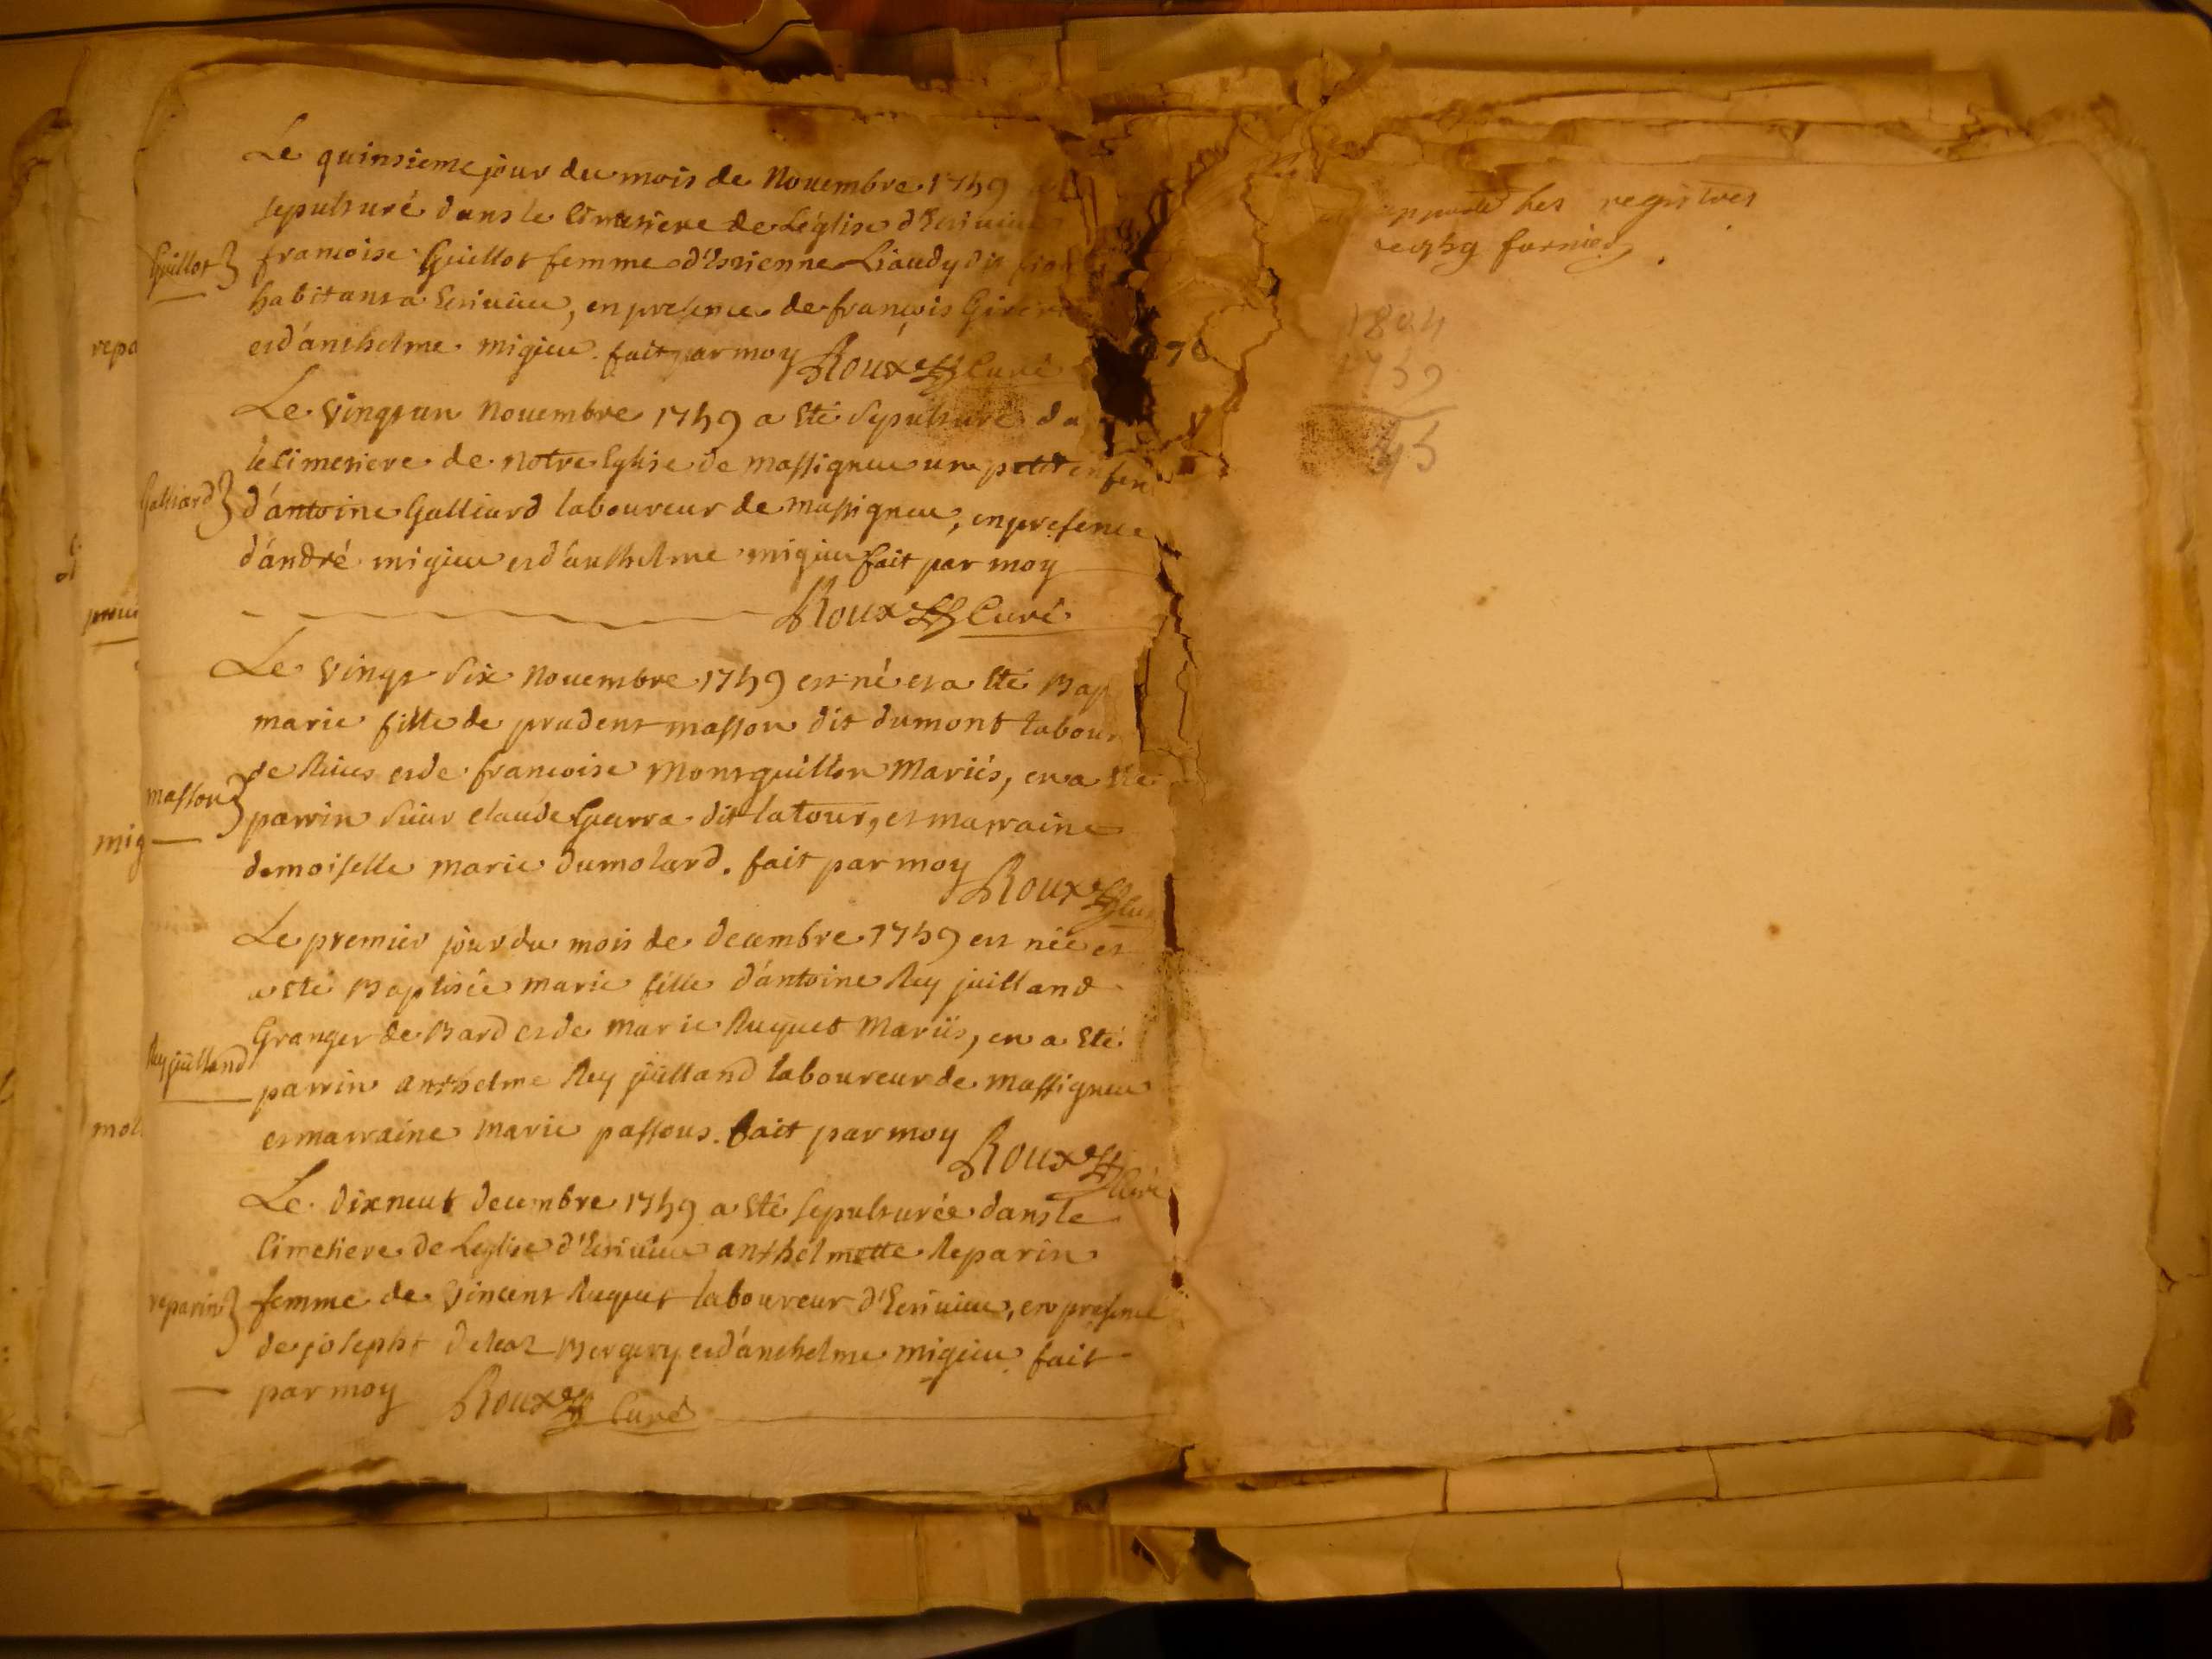 Le quinsieme jour du mois de Novembre 1759 a
sepulturé dans le Cimetiere de Léglise d'Escrivieu
Guillot francoise Guillot femme d'Estienne Liaudy dit
habitans a Escrivieu, en presence de françois
et d'anthelme migieu. fait par moy Roux Curé
Le vingt un Novembre 1759 a Eté Sepulturé da
le Cimetiere de notre Eglise de massignieu un petit enfen
Galliard d'antoine Galliard laboureur de massignieu, en presence
d'andré migieu et d'anthelme migieu fait par moy
Roux Curé
Le vingt six Novembre 1759 est né et a Eté Bap
marie fille de prudent masson dit dumont labour
de et de francoise Montguillon Mariés, en a Eté
masson parrin Sieur claude Guerra dit latour, et marraine
demoiselle marie dumolard. fait par moy
Roux Cu
Le premier jour du mois de decembre 1759 est née et
a Eté Baptisée marie fille d'antoine Rey juilland
Granger de Bard et de marie Ruquet Mariés, en a Eté
Rey juilland parrin anthelme Rey juilland laboureur de massignieu
et marraine marie passous. fait par moy
Roux Curé
Le dix neuf decembre 1759 a Eté sepulturée dans le
Cimetiere de Leglise d'Escrivieu anthelmette Reparin
reparin femme de Vincent Ruquet laboureur d'Escrivieu, en presence
de josepht Bergery et d'anthelme migieu fait
par moy Roux Curé
repa
mig
mol
les registres
1804
1759
45